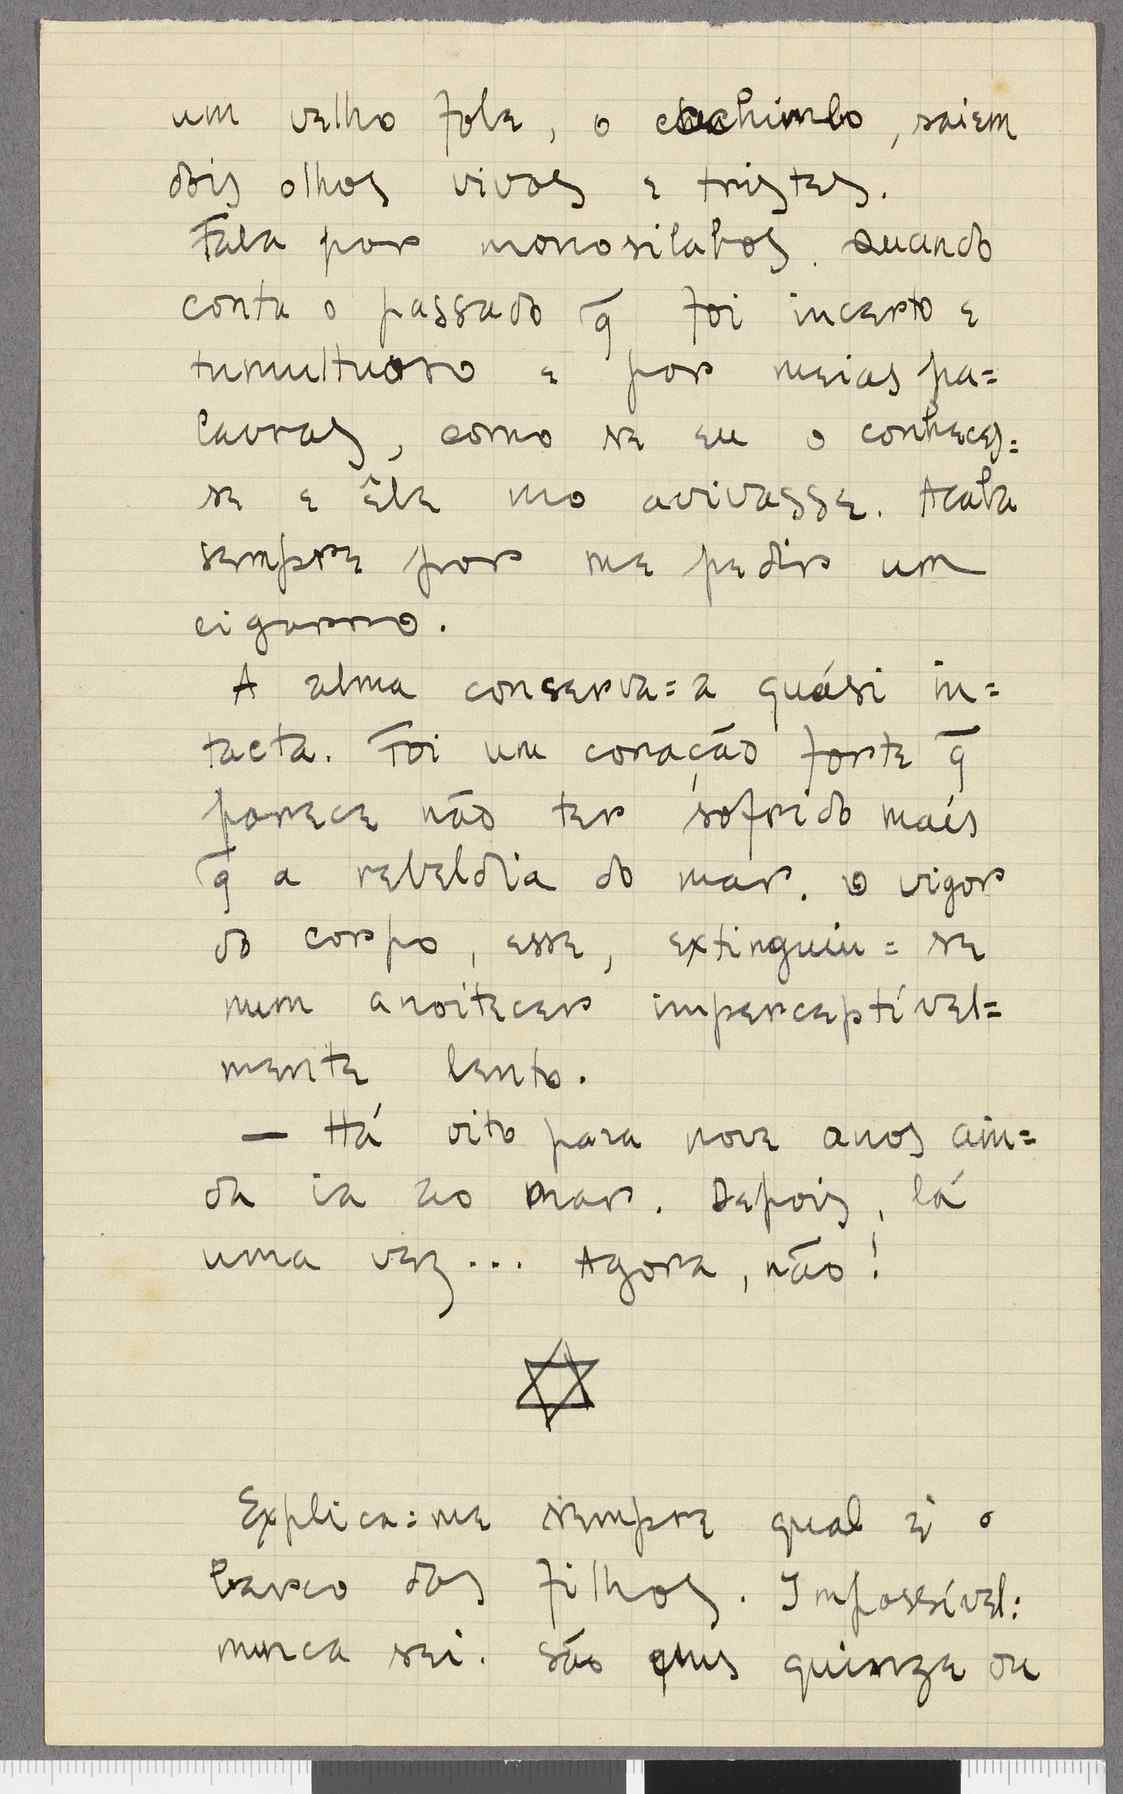 um velho fole, o cachimbo, saiem
dois olhos vivos e tristes.
Fala por monosilabos. Quando
conta o passado q̄ foi incerto e
tumultuoso e por meias pa=
lavras, como se eu o conheces=
se e êle mo avivasse. Acaba
sempre por me pedir um
cigarro.
A alma conserva=a quási in=
tacta. Foi um coração forte q̄
parece não ter sofrido mais
q̄ a rebeldia do mar. O vigor
do corpo, esse, extinguiu=se
num anoitecer imperceptível=
mente lento.
— Há oito para nove anos ain=
da ia ao mar. Depois, lá
uma vez... Agora, não!
Explica=me sempre qual é o
barco dos filhos. Impossível:
nunca sei. São quinze ou